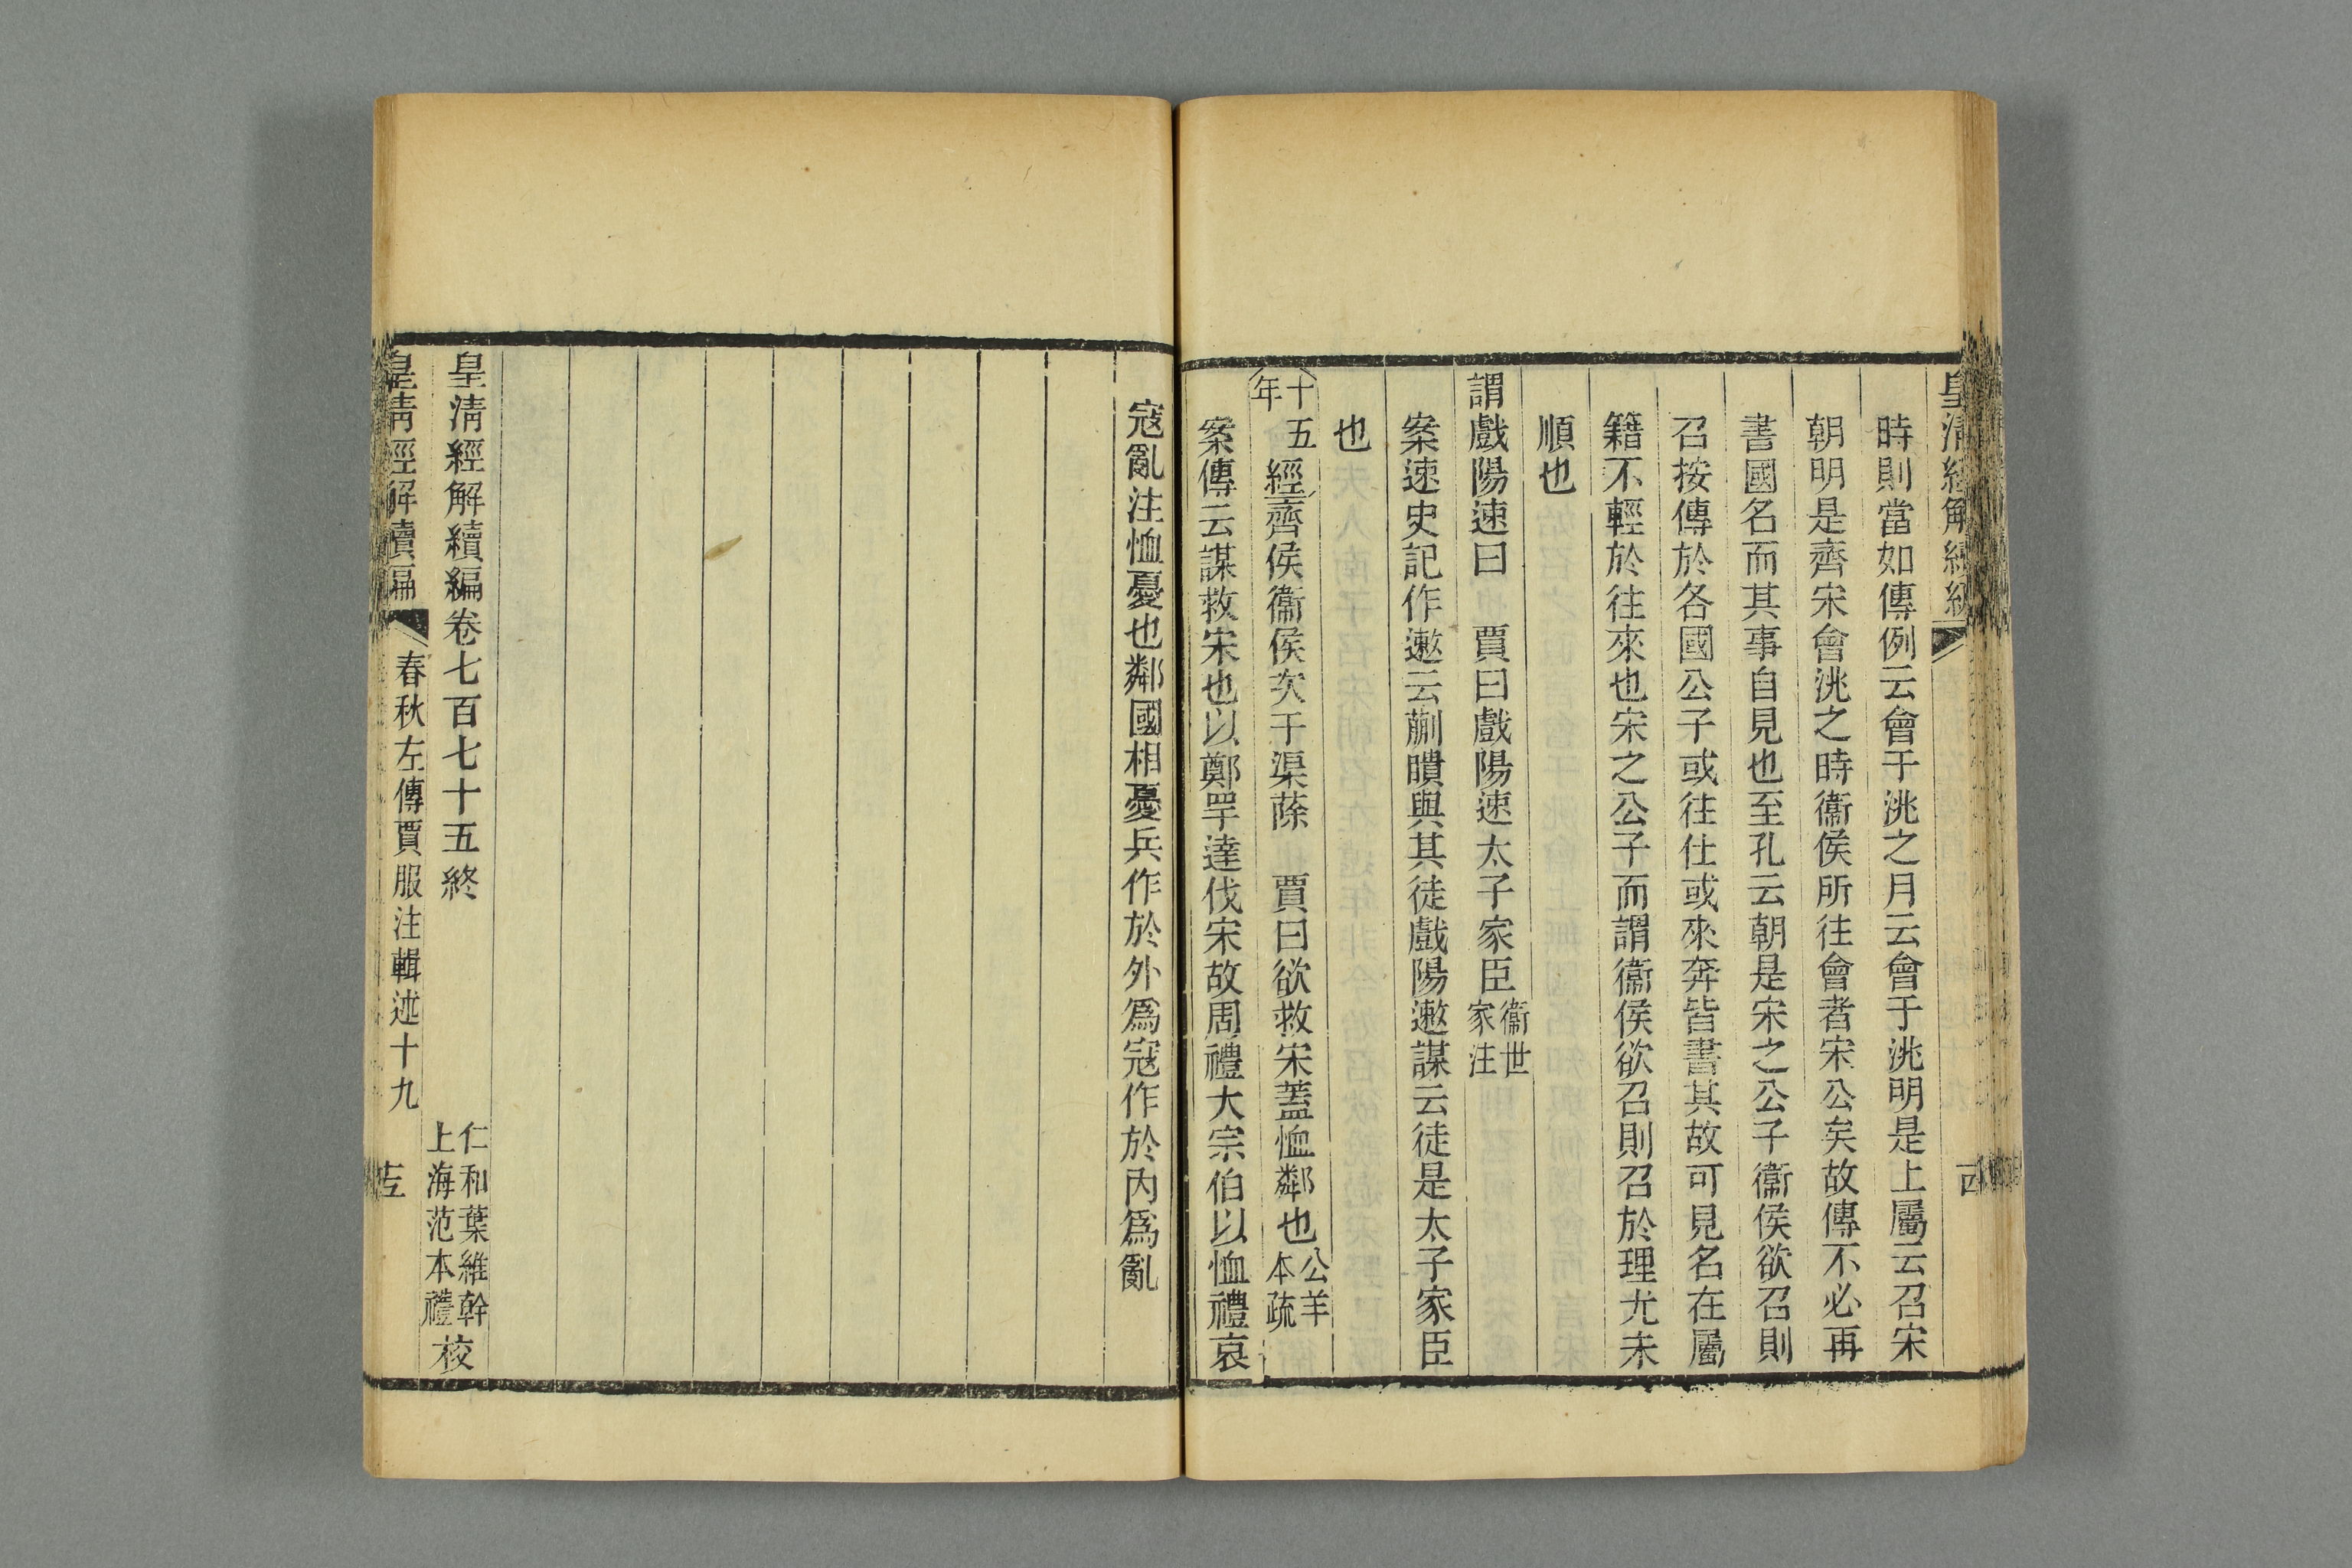 皇清經解續編
時則當如傳例云會于洮之月云會于洮明是上屬云召宋
朝明是齊宋會洮之時衞侯所往會者宋公矣故傳不必再
書國名而其事自見也至孔云朝是宋之公子衞侯欲召則
召按傳於各國公子或往仕或來奔皆書其故可見名在屬
籍不輕於往來也宋之公子而謂衞侯欲召則召於理尤未
順也
謂戲陽速曰 賈曰戲陽速太子家臣衞世家注
案速史記作遬云蒯聵與其徒戲陽遬謀云徒是太子家臣
也
十五年經齊侯衞侯次于渠蒢 賈曰欲救宋蓋恤鄰也公羊本疏
案傳云謀救宋也以鄭罕達伐宋故周禮大宗伯以恤禮哀
寇亂注恤憂也鄰國相憂兵作於外爲寇作於內爲亂
皇清經解續編卷七百七十五終
仁和葉維幹
上海范本禮校
皇清經解續編 春秋左傳賈服注輯述十九